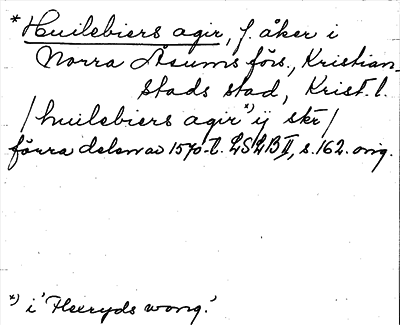 * Huilebiers agir, f. åker i
Norra Åsums förs., Kristian-
stads stad, Krist. l.
/huilebiers agir*) ij skr/
förra delen av 1570-t. LSLB II, s. 162. orig.
*) i 'Hxeryds wong.'